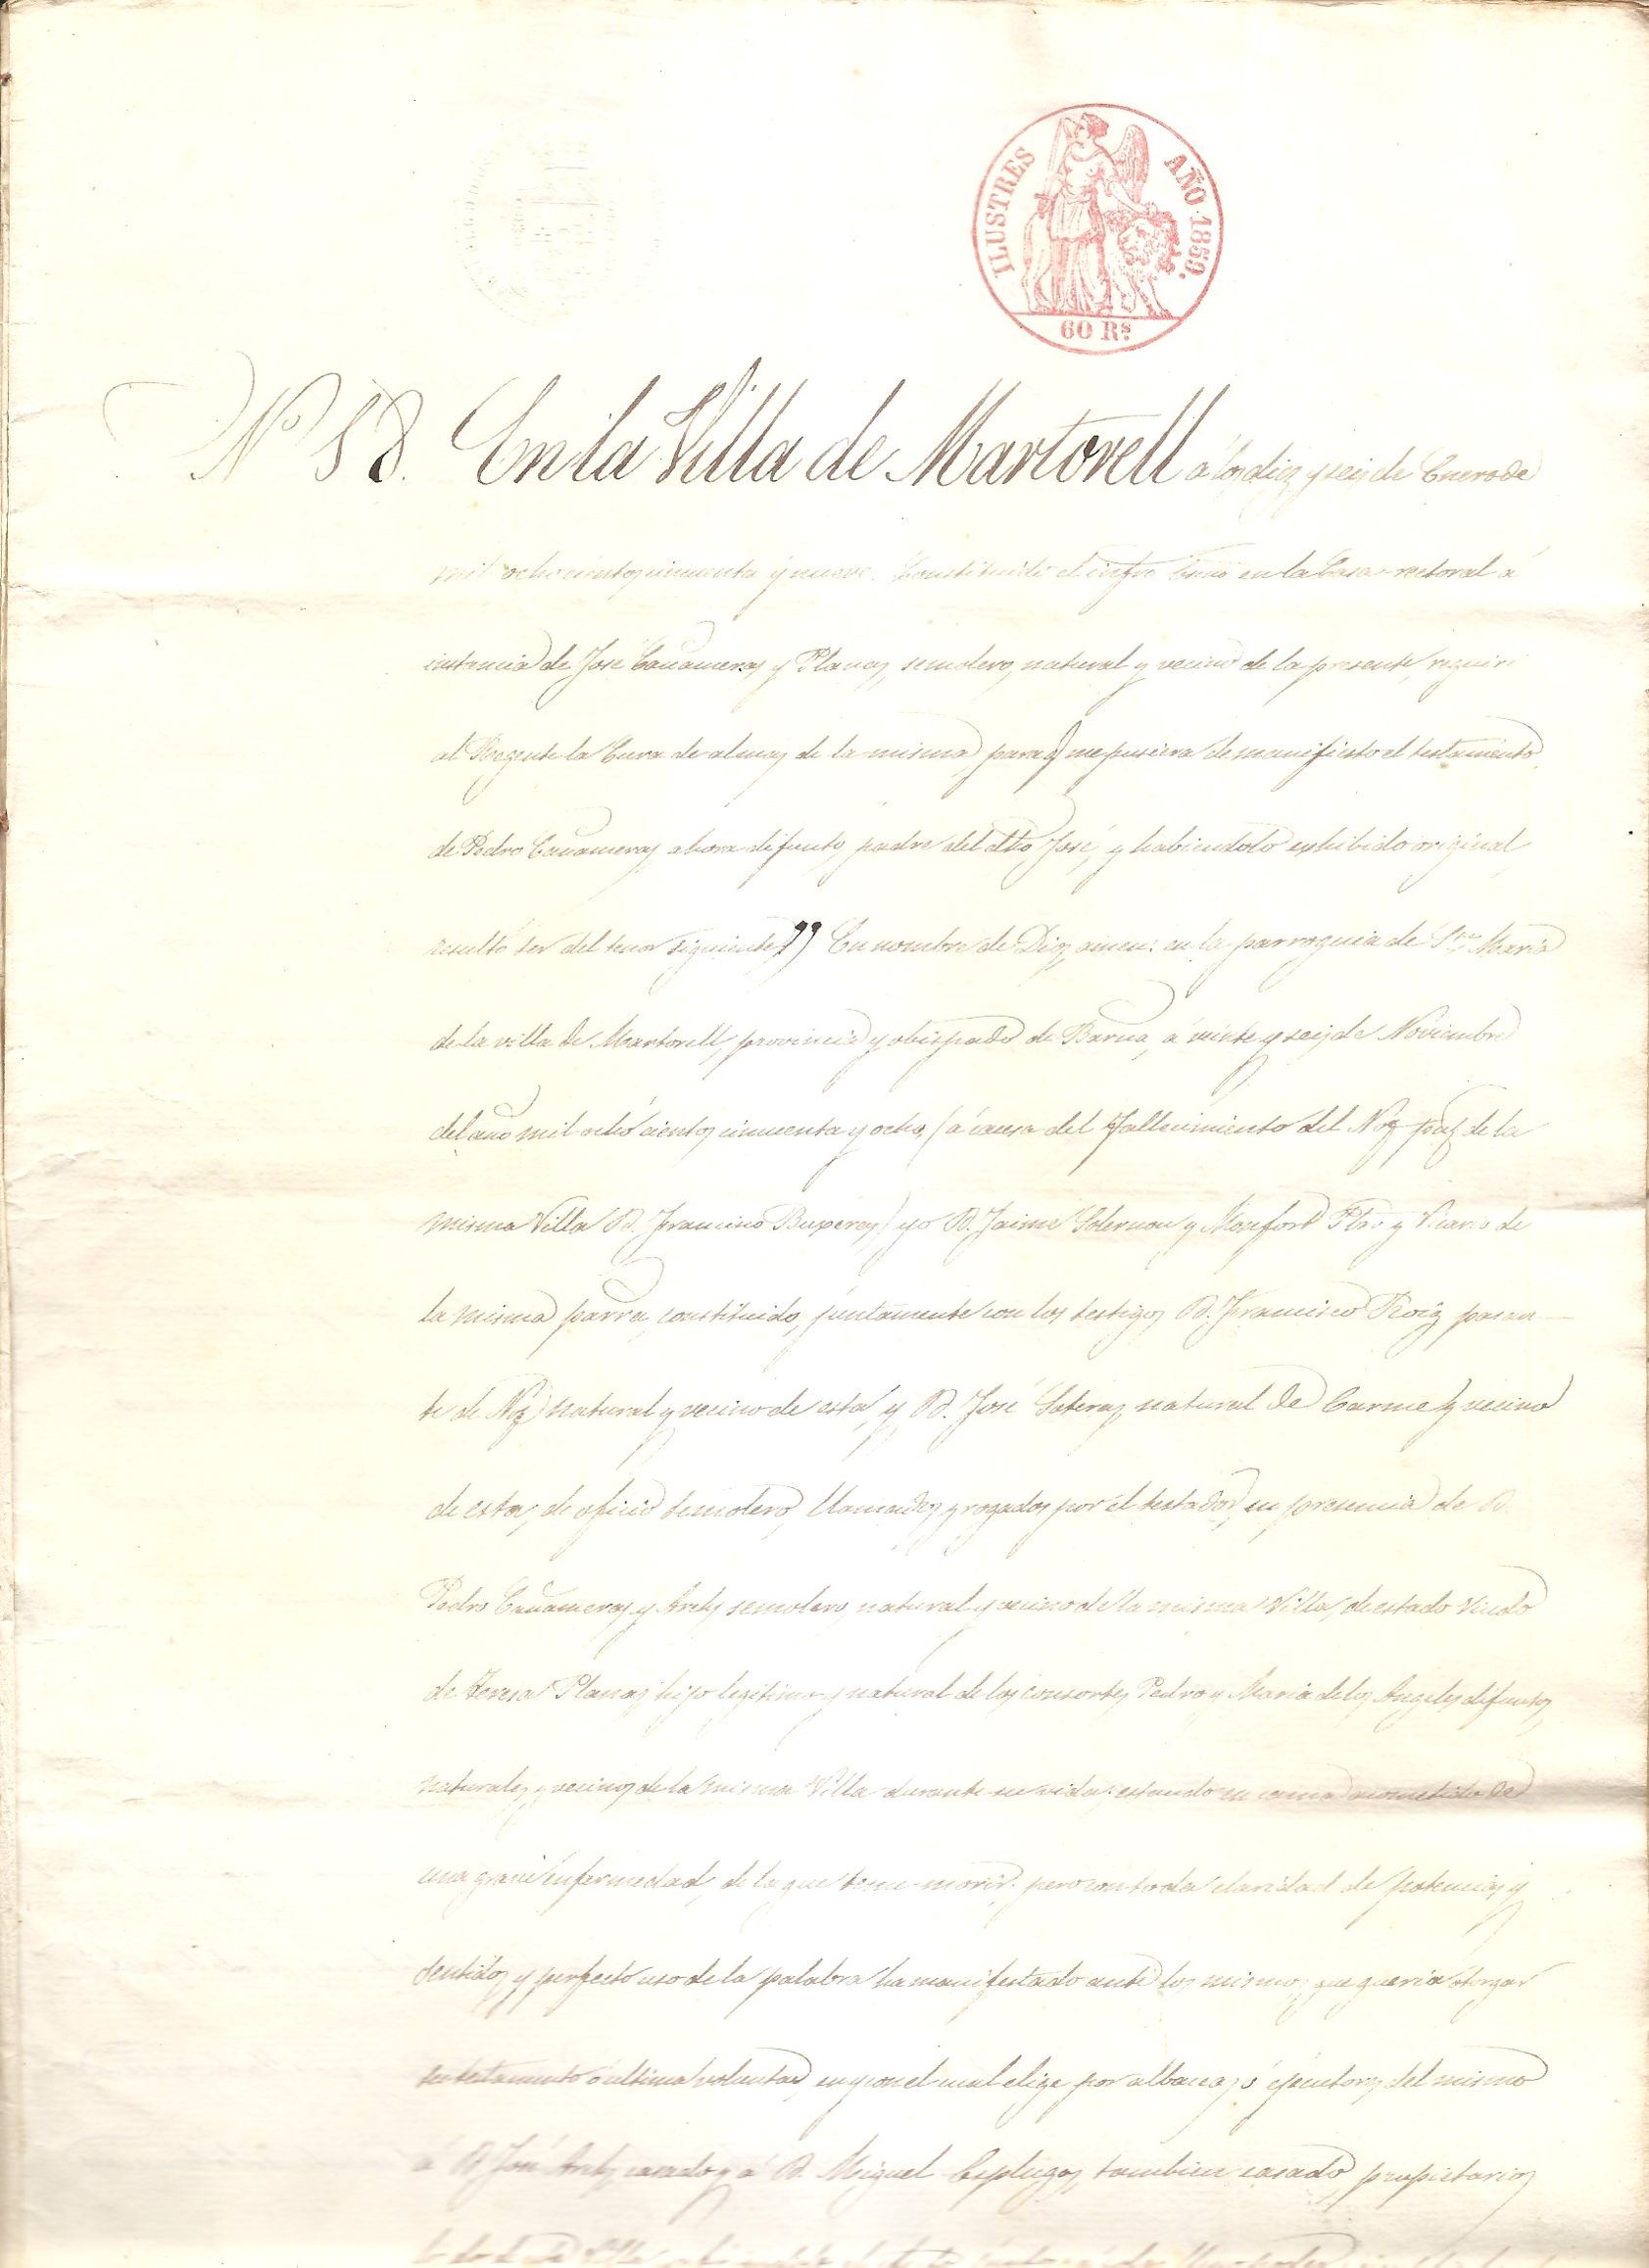 ILUSTRES AÑO 1859.
60 Rs
Nº 58. En la Villa de Martorell á los diez y seis de Enero de
mil ochocientos cincuenta y nueve. Constituido el infro Esno en la Casa rectoral á
instancia de José Cañameras y Planas, semolero, natural y vecino de la presente, requirí
al Regente la Cura de almas de la misma para q me pusiera de manifiesto el testamento
de Pedro Cañameras, ahora difunto, padre del dho José, y habiendolo exhibido original
resultó ser del tenor siguiente " En nombre de Dios, amen: en la parroquia de Sta Maria
de la villa de Martorell, provincia y obispado de Barna, á veinte y seis de Noviembre
del año mil ocho cientos cincuenta y ocho, (á causa del fallecimiento del de la
misma Villa D. Francisco Buxeres) yo D. Jaime y Monfort Pbro y Vicario de
la misma parra, constituido, juntamente con los testigos D. Francisco Roig pasan-
te de natural y vecino de esta, y D. José Soteras, natural de Carme y vecino
de esta, de oficio semolero, llamados y rogados por el testador, en presencia de D.
Pedro Cañameras y semolero, natural y vecino de la misma Villa, de estado viudo
de Teresa Planas, hijo legitimo y natural de los consortes Pedro y Maria de los Angeles difuntos,
naturales y vecinos de la misma Villa durante su vida: estando en cama acometido de
una grave enfermedad, de la que teme morir: pero con toda claridad de potencias y
sentidos y perfecto uso de la palabra ha manifestado ante los mismos, que queria otorgar
su testamento ó ultima voluntad, en y con el cual elige por albaceas ó ejecutores del mismo
á D. José casado, y á D. Miguel Esplugas, tambien casado, propietarios